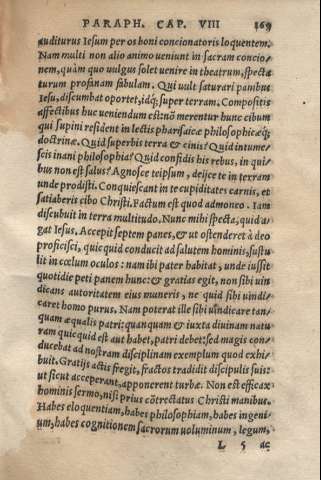 PARAPH. CAP. VIII 169
auditurus Iesum per os boni concionatoris loquentem.
Nam multi non alio animo ueniunt in sacram concio-
nem, quàm quo uulgus solet uenire in theatrum, specta
turum profinam fabulam. Qui uult saturari panibus
Iesu, discumbat oportet, idq; super terram. Compositis
affectibus huc ueniendum est: nō merentur hunc cibum
qui supini resident in lectis pharisaicæ philosophiæq;
doctrinæ. Quid superbis terra & cinis? Quid intume-
scis inani philosophia? Quid confidis his rebus, in qui-
bus non est salus? Agnosce teipsum, deijce te in terram
unde prodisti. Conquiescant in te cupiditates carnis, et
satiaberis cibo Christi. Factum est quod admoneo. Iam
discubuit in terra multitudo. Nunc mihi specta, quid a-
gat Iesus. Accepit septem panes, & ut ostenderet à deo
proficisci, quicquid conducit ad salutem hominis, sustu
lit in cœlum oculos: nam ibi pater habitat, unde iussit
quotidie peti panem hunc: & gratias egit, non sibi uin
dicans autoritatem eius muneris, ne quid sibi uindi-
caret homo purus. Nam poterat ille sibi uindicare tan-
quam æqualis patri: quanquam & iuxta diuinam natu
ram quicquid est aut habet, patri debet: sed magis con-
ducebat ad nostram disciplinam exemplum quod exhi-
buit. Gratijs actis fregit, fractos tradidit discipulis suis:
ut sicut acceperant, apponerent turbæ. Non est efficax
hominis sermo, nisi prius cōtrectatus Christi manibus.
Habes eloquentiam, habes philosophiam, habes ingeni-
um, habes cognitionem sacrorum uoluminum, legum,
L 5 ac